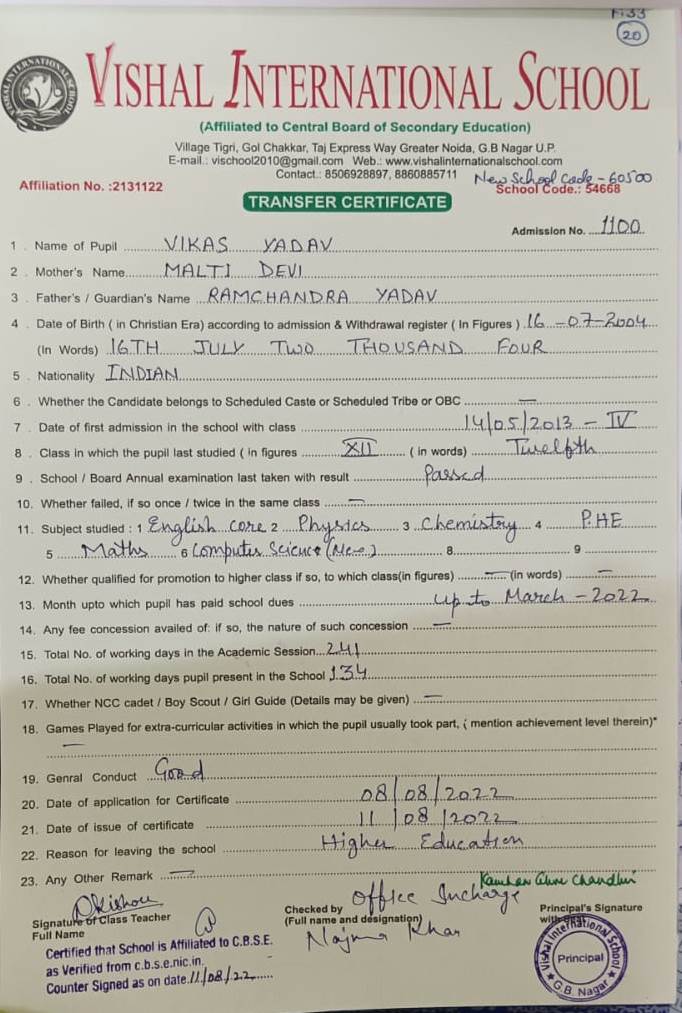 F.33
20
VISHAL INTERNATIONAL SCHOOL
VISHAL INTERNATIONAL SCHOOL
(Affiliated to Central Board of Secondary Education)
Village Tigri, Gol Chakkar, Taj Express Way Greater Noida, G.B Nagar U.P.
E-mail.: vischool2010@gmail.com Web.: www.vishalinternationalschool.com
Contact.: 8506928897, 8860885711
New School Code - 60500
Affiliation No. :2131122 School Code.: 54668
TRANSFER CERTIFICATE
Admission No. 1100
1 . Name of Pupil VIKAS YADAV
2 . Mother's Name MALTI DEVI
3 . Father's / Guardian's Name RAMCHANDRA YADAV
4 . Date of Birth ( in Christian Era) according to admission & Withdrawal register ( In Figures ) 16-07-2004
(In Words) 16TH JULY TWO THOUSAND FOUR
5 . Nationality INDIAN
6 . Whether the Candidate belongs to Scheduled Caste or Scheduled Tribe or OBC —
7 . Date of first admission in the school with class 14/05/2013 - IV
8 . Class in which the pupil last studied ( in figures XII ( in words) Twelfth
9 . School / Board Annual examination last taken with result Passed
10. Whether failed, if so once / twice in the same class —
11. Subject studied : 1 English core 2 Physics 3 Chemistry 4 P.HE
5 Maths 6 Computer Science (New) 8 9
12. Whether qualified for promotion to higher class if so, to which class(in figures) — (in words) —
13. Month upto which pupil has paid school dues up to March - 2022
14. Any fee concession availed of: if so, the nature of such concession —
15. Total No. of working days in the Academic Session 241
16. Total No. of working days pupil present in the School 134
17. Whether NCC cadet / Boy Scout / Girl Guide (Details may be given) —
18. Games Played for extra-curricular activities in which the pupil usually took part, ( mention achievement level therein)*
—
19. Genral Conduct Good
20. Date of application for Certificate 08/08/2022
21. Date of issue of certificate 11/08/2022
22. Reason for leaving the school Higher Education
23. Any Other Remark —
Signature of Class Teacher
Full Name
Checked by Office Incharge
(Full name and designation)
Najma Khan
Principal's Signature
with
Certified that School is Affiliated to C.B.S.E.
as Verified from c.b.s.e.nic.in.
Counter Signed as on date 11/08/22
Vishal International School
Principal
G.B. Nagar